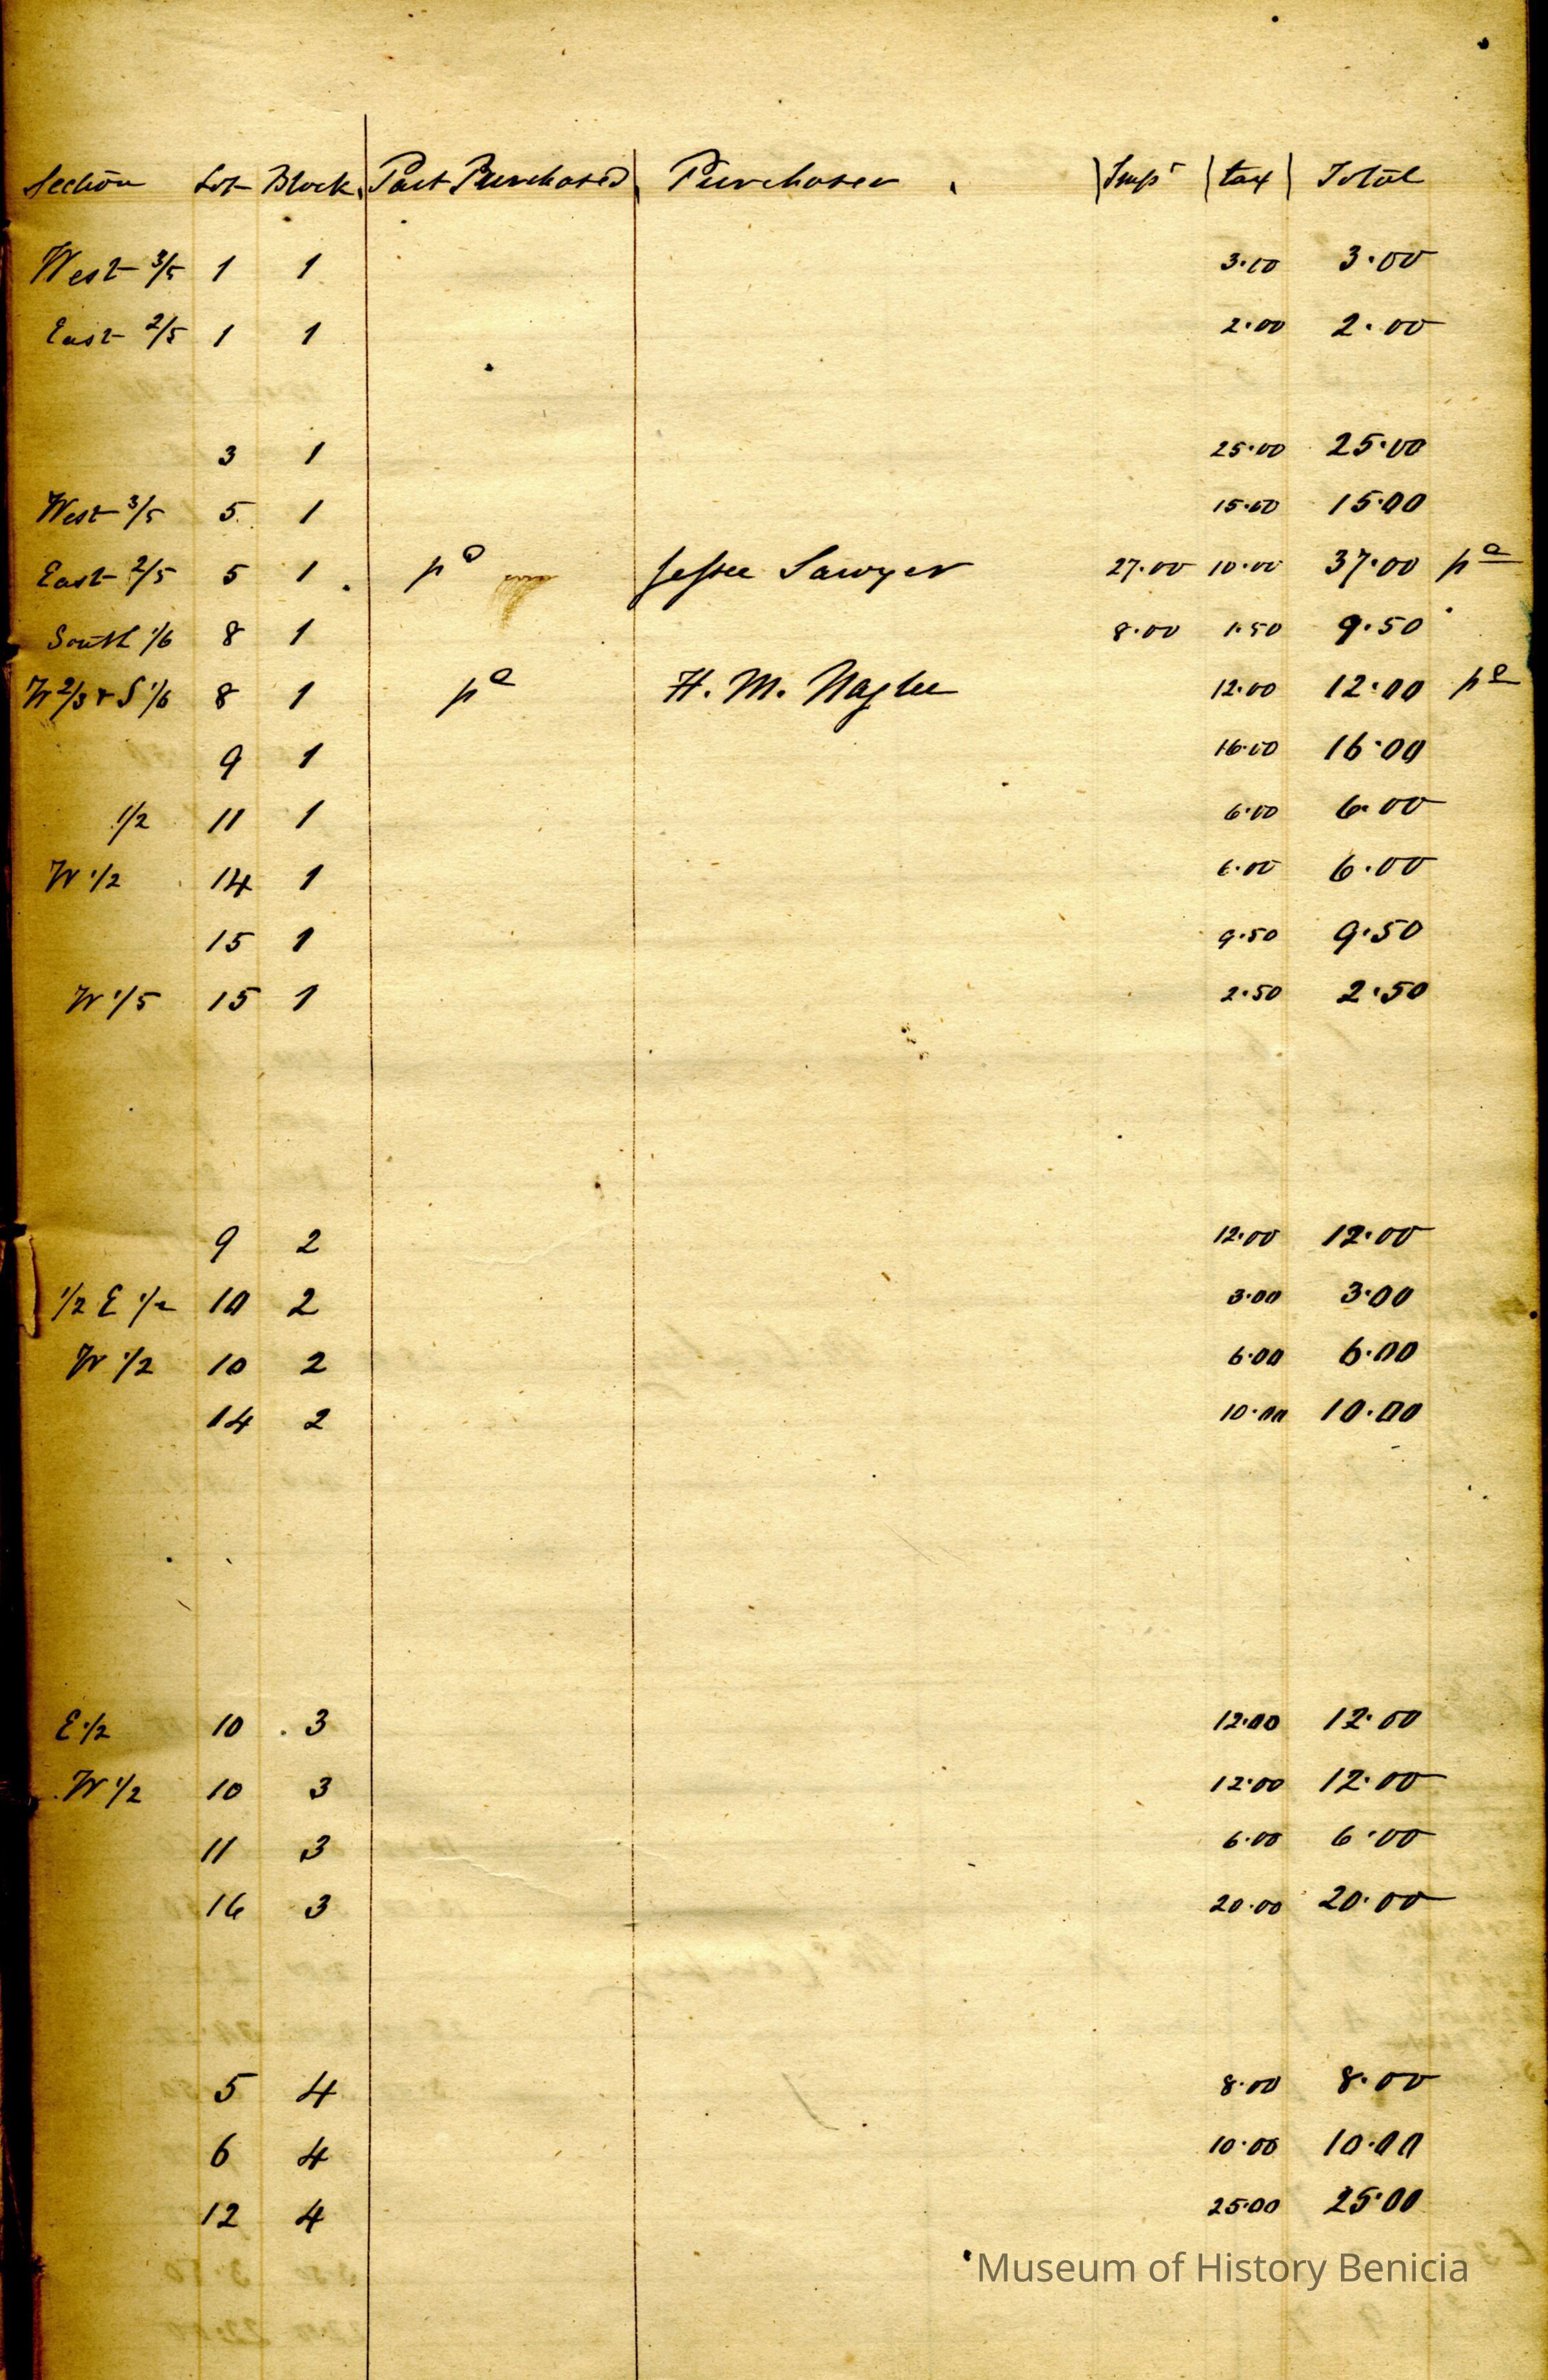 Section Lot Block Part Purchased Purchaser Impt tax Total
West 3/5 1 1 3.00 3.00
East 2/5 1 1 2.00 2.00
3 1 25.00 25.00
West 3/5 5 1 15.00 15.00
East 2/5 5 1 pd Jessee Sawyer 27.00 10.00 37.00 pd
South 1/6 8 1 8.00 1.50 9.50
W 2/3 & S 1/6 8 1 pd H. M. Naglee 12.00 12.00 pd
9 1 16.00 16.00
1/2 11 1 6.00 6.00
W 1/2 14 1 6.00 6.00
15 1 9.50 9.50
W 1/5 15 1 2.50 2.50
9 2 12.00 12.00
1/2 E 1/2 10 2 3.00 3.00
W 1/2 10 2 6.00 6.00
14 2 10.00 10.00
E 1/2 10 3 12.00 12.00
W 1/2 10 3 12.00 12.00
11 3 6.00 6.00
16 3 20.00 20.00
5 4 8.00 8.00
6 4 10.00 10.00
12 4 25.00 25.00
Museum of History Benicia